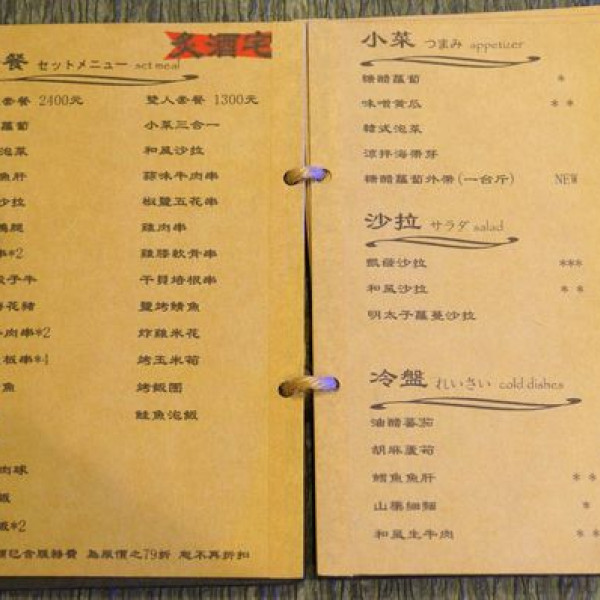 炙酒宅
餐 セットメニュー set meal
套餐 2400元 雙人套餐 1300元
蘿蔔 小菜三合一
泡菜 和風沙拉
魚肝 蒜味牛肉串
沙拉 椒鹽五花串
腿 雞肉串
串*2 雞膝軟骨串
骰子牛 干貝培根串
花豬 鹽烤鯖魚
牛肉串*2 炸雞米花
板串*4 烤玉米筍
魚 烤飯團
鮭魚泡飯
肉球
飯
飯*2
價已含服務費 為原價之79折 恕不再折扣
小菜 つまみ appetizer
糖醋蘿蔔 *
味噌黃瓜 * *
韓式泡菜
涼拌海帶芽
糖醋蘿蔔外帶(一台斤) NEW
沙拉 サラダ salad
凱薩沙拉 ***
和風沙拉 * *
明太子蘿蔓沙拉
冷盤 れいさい cold dishes
油醋蕃茄
胡麻蘆筍
鱈魚魚肝 * *
山藥細麵 *
和風生牛肉 * *